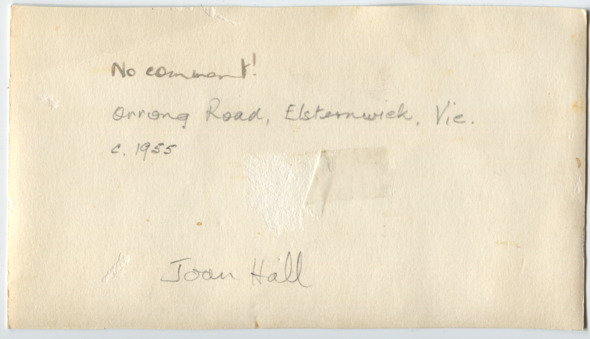 No comment!
Orrong Road, Elsternwick, Vic.
c. 1955
Joan Hall